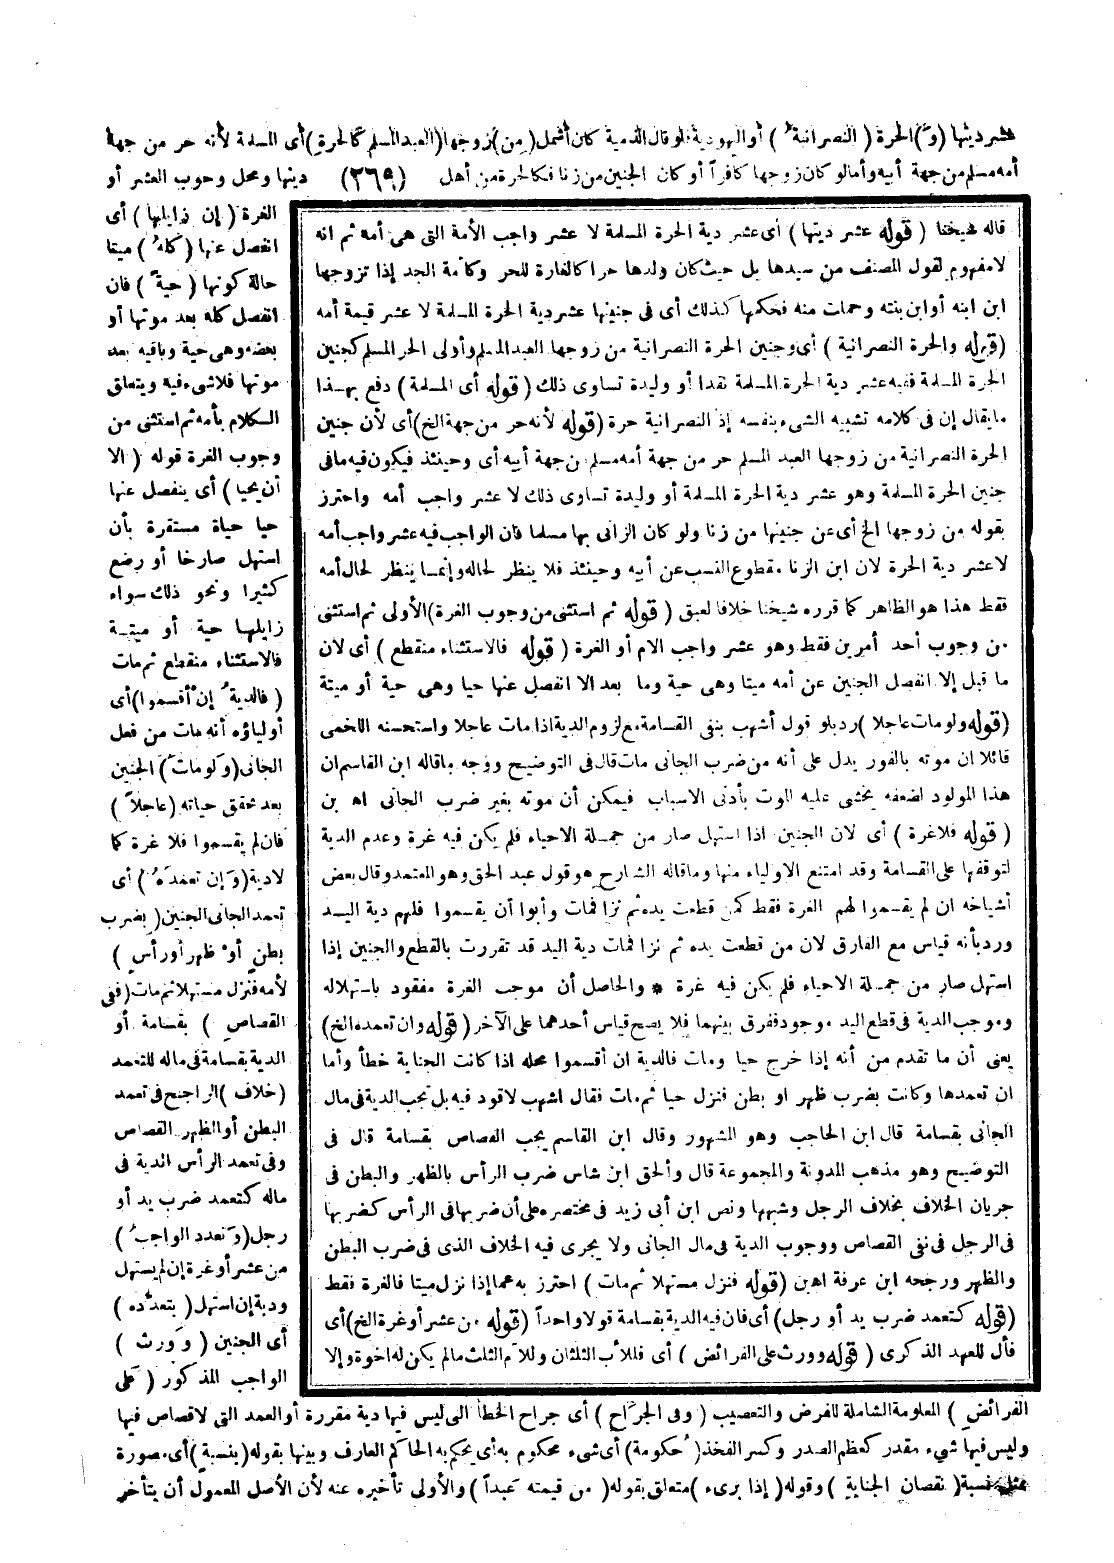 عشر ديتها (و) الحرة (النصرانية) أو اليهودية فلو قال الذمية كان أشمل (من) زوجها (العبد المسلم كالحرة) أى المسلمة لأنه حر من جهة
أمه مسلم من جهة أبيه وأما لو كان زوجها كافراً أو كان الجنين من زنا فكالحرة من أهل (٣٦٩) دينها ومحل وجوب العشر أو
الغرة (إن زايلها) أى
انفصل عنها (كله) ميتا
حالة كونها (حية) فان
انفصل كله بعد موتها أو
بعضه وهى حية وباقيه بعد
موتها فلا شىء فيه ويتعلق
الكلام بأمه ثم استثنى من
وجوب الغرة قوله (الا
أن يحيا) أى ينفصل عنها
حيا حياة مستقرة بأن
استهل صارخا أو رضع
كثيرا ونحو ذلك سواء
زايلها حية أو ميتة
فالاستثناء منقطع ثم مات
(فالدية إن أقسموا) أى
أولياؤه أنه مات من فعل
الجانى (ولو مات) الجنين
بعد تحقق حياته (عاجلاً)
فان لم يقسموا فلا غرة كما
لا دية (وإن تعمده) أى
تعمد الجانى الجنين (بضرب
بطن أو ظهر أو رأس)
لأمه فنزل مستهلا ثم مات (ففى
القصاص) بقسامة أو
الدية بقسامة فى ماله للتعمد
(خلاف) الراجح فى تعمد
البطن أو الظهر القصاص
وفى تعمد الرأس الدية فى
ماله كتعمد ضرب يد أو
رجل (وتعدد الواجب)
من عشر أو غرة إن لم يستهل
ودية إن استهل (بتعدده)
أى الجنين (وورث)
الواجب المذكور (على
قاله شيخنا (قوله عشر ديتها) أى عشر دية الحرة المسلمة لا عشر واجب الأمة التى هى أمه ثم انه
لا مفهوم لقول المصنف من سيدها بل حيث كان ولدها حرا كالغارة للحر وكأمة الجد إذا تزوجها
ابن ابنه أو ابن بنته وحملت منه فحكمها كذلك أى فى جنينها عشر دية الحرة المسلمة لا عشر قيمة أمه
(قوله والحرة النصرانية) أى وجنين الحرة النصرانية من زوجها العبد المسلم وأولى الحر المسلم كجنين
الحرة المسلمة ففيه عشر دية الحرة المسلمة نقدا أو وليدة تساوى ذلك (قوله أى المسلمة) دفع بهذا
ما يقال إن فى كلامه تشبيه الشىء بنفسه إذ النصرانية حرة (قوله لأنه حر من جهة الخ) أى لأن جنين
الحرة النصرانية من زوجها العبد المسلم حر من جهة أمه مسلم من جهة أبيه أى وحينئذ فيكون فيه ما فى
جنين الحرة المسلمة وهو عشر دية الحرة المسلمة أو وليدة تساوى ذلك لا عشر واجب أمه واحترز
بقوله من زوجها الخ أى عن جنينها من زنا ولو كان الزانى بها مسلما فان الواجب فيه عشر واجب أمه
لا عشر دية الحرة لان ابن الزنا مقطوع النسب عن أبيه وحينئذ فلا ينظر لحاله وإنما ينظر لحال أمه
فقط هذا هو الظاهر كما قرره شيخنا خلافا لعبق (قوله ثم استثنى من وجوب الغرة) الأولى ثم استثنى
من وجوب أحد أمرين فقط وهو عشر واجب الام أو الغرة (قوله فالاستثناء منقطع) أى لان
ما قبل إلا انفصل الجنين عن أمه ميتا وهى حية وما بعد الا انفصل عنها حيا وهى حية أو ميتة
(قوله ولو مات عاجلا) رد بلو قول أشهب بنفى القسامة مع لزوم الدية اذا مات عاجلا واستحسنه اللخمى
قائلا ان موته بالفور يدل على أنه من ضرب الجانى مات قال فى التوضيح ووجه ما قاله ابن القاسم ان
هذا المولود لضعفه يخشى عليه الموت بأدنى الاسباب فيمكن أن موته بغير ضرب الجانى اه بن
(قوله فلا غرة) أى لان الجنين اذا استهل صار من جملة الاحياء فلم يكن فيه غرة وعدم الدية
لتوقفها على القسامة وقد امتنع الاولياء منها وما قاله الشارح هو قول عبد الحق وهو المعتمد وقال بعض
أشياخه ان لم يقسموا لهم الغرة فقط كمن قطعت يده ثم نزا فمات وأبوا أن يقسموا فلهم دية اليد
ورد بأنه قياس مع الفارق لان من قطعت يده ثم نزا فمات دية اليد قد تقررت بالقطع والجنين إذا
استهل صار من جملة الاحياء فلم يكن فيه غرة * والحاصل أن موجب الغرة مفقود باستهلاله
وموجب الدية فى قطع اليد موجود ففرق بينهما فلا يصح قياس أحدهما على الآخر (قوله وان تعمده الخ)
يعنى أن ما تقدم من أنه إذا خرج حيا ومات فالدية ان أقسموا محله اذا كانت الجناية خطأ وأما
ان تعمدها وكانت بضرب ظهر او بطن فنزل حيا ثم مات فقال اشهب لا قود فيه بل تجب الدية فى مال
الجانى بقسامة قال ابن الحاجب وهو المشهور وقال ابن القاسم يجب القصاص بقسامة قال فى
التوضيح وهو مذهب المدونة والمجموعة قال وألحق ابن شاس ضرب الرأس بالظهر والبطن فى
جريان الخلاف بخلاف الرجل وشبهها ونص ابن أبى زيد فى مختصره على أن ضربها فى الرأس كضربها
فى الرجل فى نفى القصاص ووجوب الدية فى مال الجانى ولا يجرى فيه الخلاف الذى فى ضرب البطن
والظهر ورجحه ابن عرفة اه بن (قوله فنزل مستهلا ثم مات) احترز به عما إذا نزل ميتا فالغرة فقط
(قوله كتعمد ضرب يد أو رجل) أى فان فيه الدية بقسامة قولا واحداً (قوله من عشر أو غرة الخ) أى
فأل للعهد الذكرى (قوله وورث على الفرائض) أى فللأب الثلثان وللأم الثلث ما لم يكن له اخوة وإلا
الفرائض) المعلومة الشاملة للفرض والتعصيب (وفى الجراح) أى جراح الخطأ التى ليس فيها دية مقررة أو العمد التى لا قصاص فيها
وليس فيها شىء مقدر كعظم الصدر وكسر الفخذ (حكومة) أى شىء محكوم به أى يحكم به الحاكم العارف وبينها بقوله (بنسبة) أى مصورة
بمثل نسبة (نقصان الجناية) وقوله (إذا برىء) متعلق بقوله (من قيمته عبداً) والأولى تأخيره عنه لأن الأصل المعمول أن يتأخر